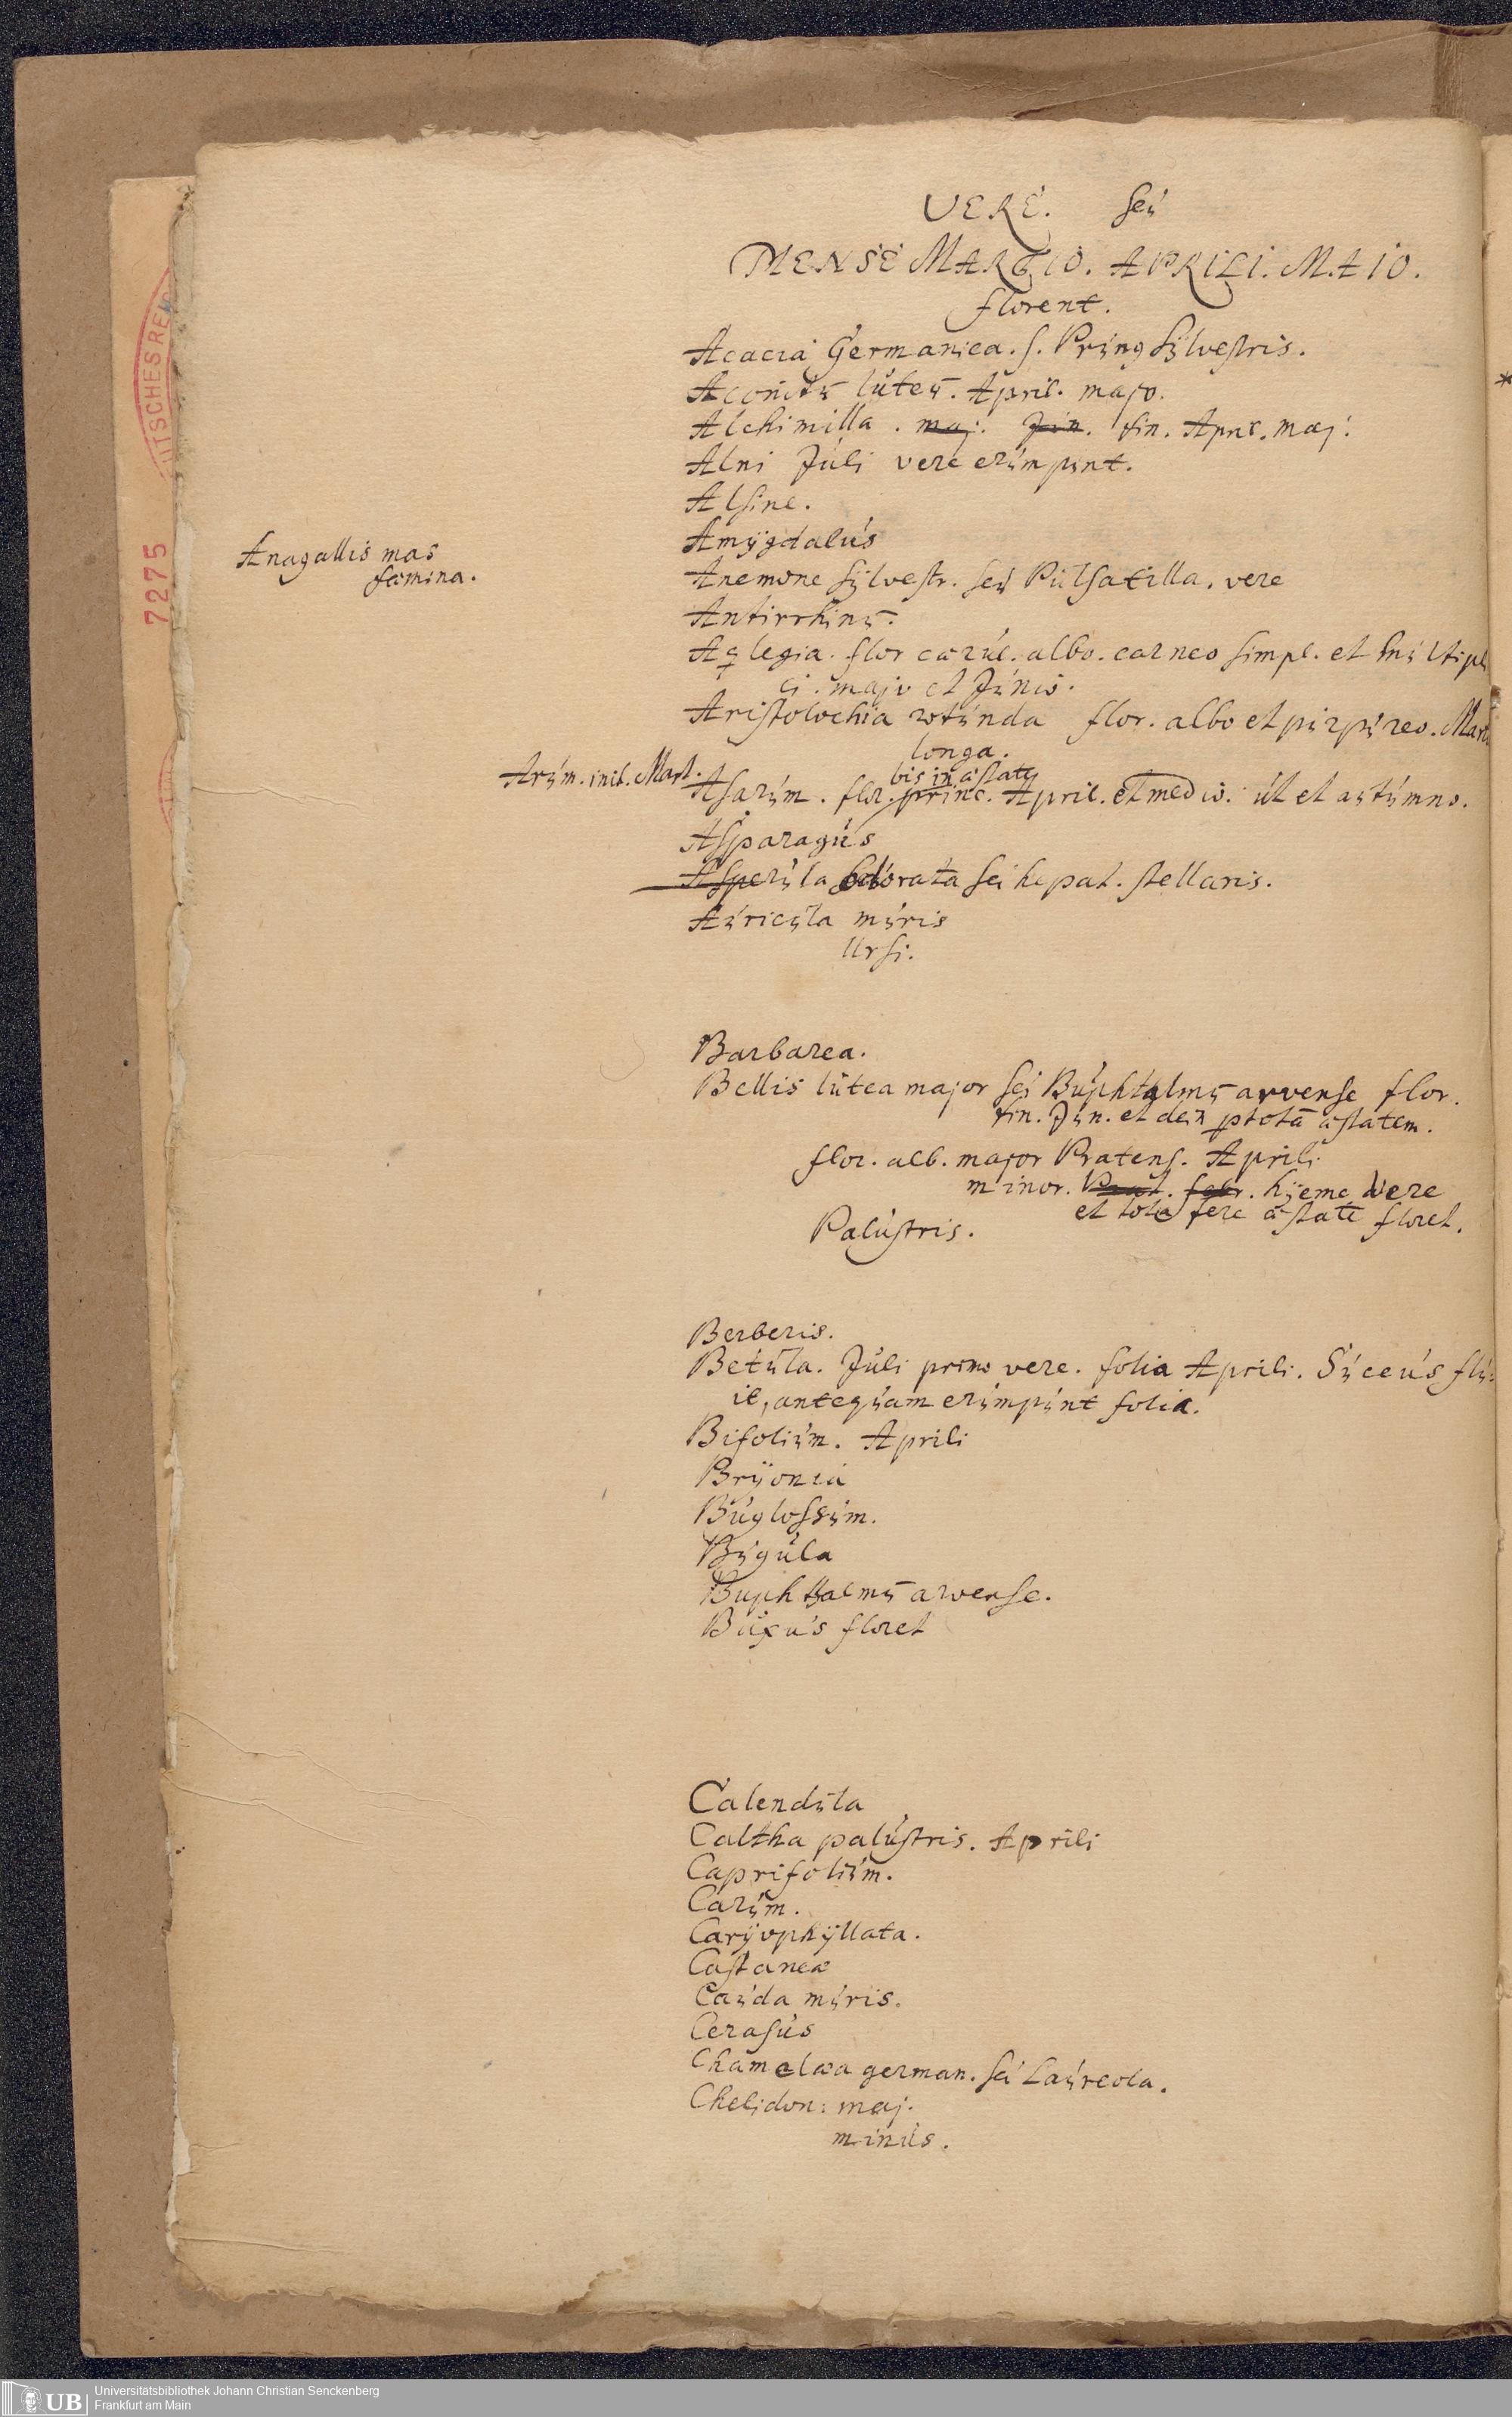 VERE. seú
MENSE MARTIO. APRILI. MAIO.
florent.
Acacia Germanica. s. Prunq Sÿlvestris.
Aconitū lúteū. April. majo.
Alchimilla. maj. Jún. fin. April. maj.
Alni Júli vere erúmpúnt.
Alsine.
Amÿgdalús
Anagallis mas
fæmina.
Anemone Sÿlvestr. seú Púlsatilla. vere
Antirrhinū.
Aq̨legia. flor cærúl. albo. carneo simpl. et múltipli
ci. majo et Júnio.
Aristolochia rotúnda flor. albo et púrpúreo. Mart
longa.
Arúm. init. Mart.
bis in æstate
Asarúm. flor. princ. April. et medio. út et aútúmno.
Asparagús
Asperúla odorata seú hepat. stellaris.
Aúricúla múris
Ursi.
Barbarea.
Bellis lútea major seú Búphtalmū arvense flor.
fin. Jún. et dein p totā æstatem.
flor. alb. major Pratens. Aprili
minor. Prat. febr. hÿeme Vere
et tota fere æstate floret.
Palústris.
Berberis.
Betúla. Júli primo vere. folia Aprili. Súccús flú:
it, anteqúam erúmpúnt folia.
Bifoliúm. Aprili
Brÿonia
Búglossúm.
Búgúla
Buphthalmū arvense.
Búxús floret
Calendúla
Caltha palústris. Aprili
Caprifoliúm.
Carúm.
Carÿophÿllata.
Castanea
Caúda múris.
Cerasús
Chamelæa german. seú Laúreola.
Chelidon: maj.
minús.
7275
UTSCHES REI
UB
Universitätsbibliothek Johann Christian Senckenberg
Frankfurt am Main